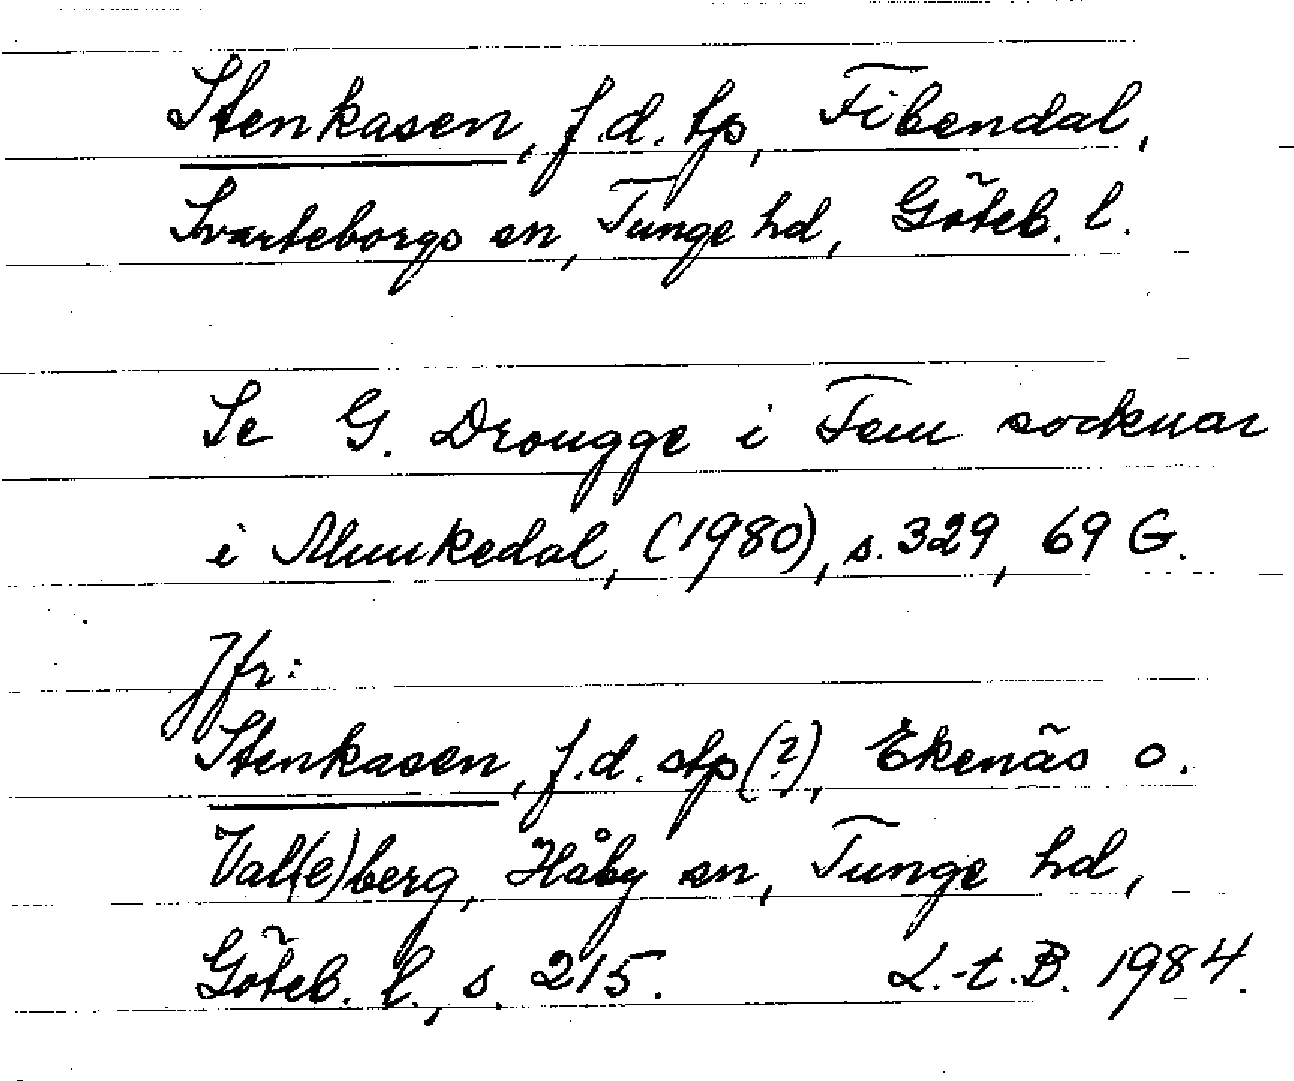 Stenkasen, f.d. tp, Fibendal,
Svarteborgs sn, Tunge hd, Göteb. l.
Se G. Drougge i Fem socknar
i Munkedal, (1980), s. 329, 69 G.
Jfr:
Stenkasen, f.d. stp(?), Ekenäs o.
Val(e)berg, Håby sn, Tunge hd,
Göteb. l., s. 215. L.-t.B. 1984.